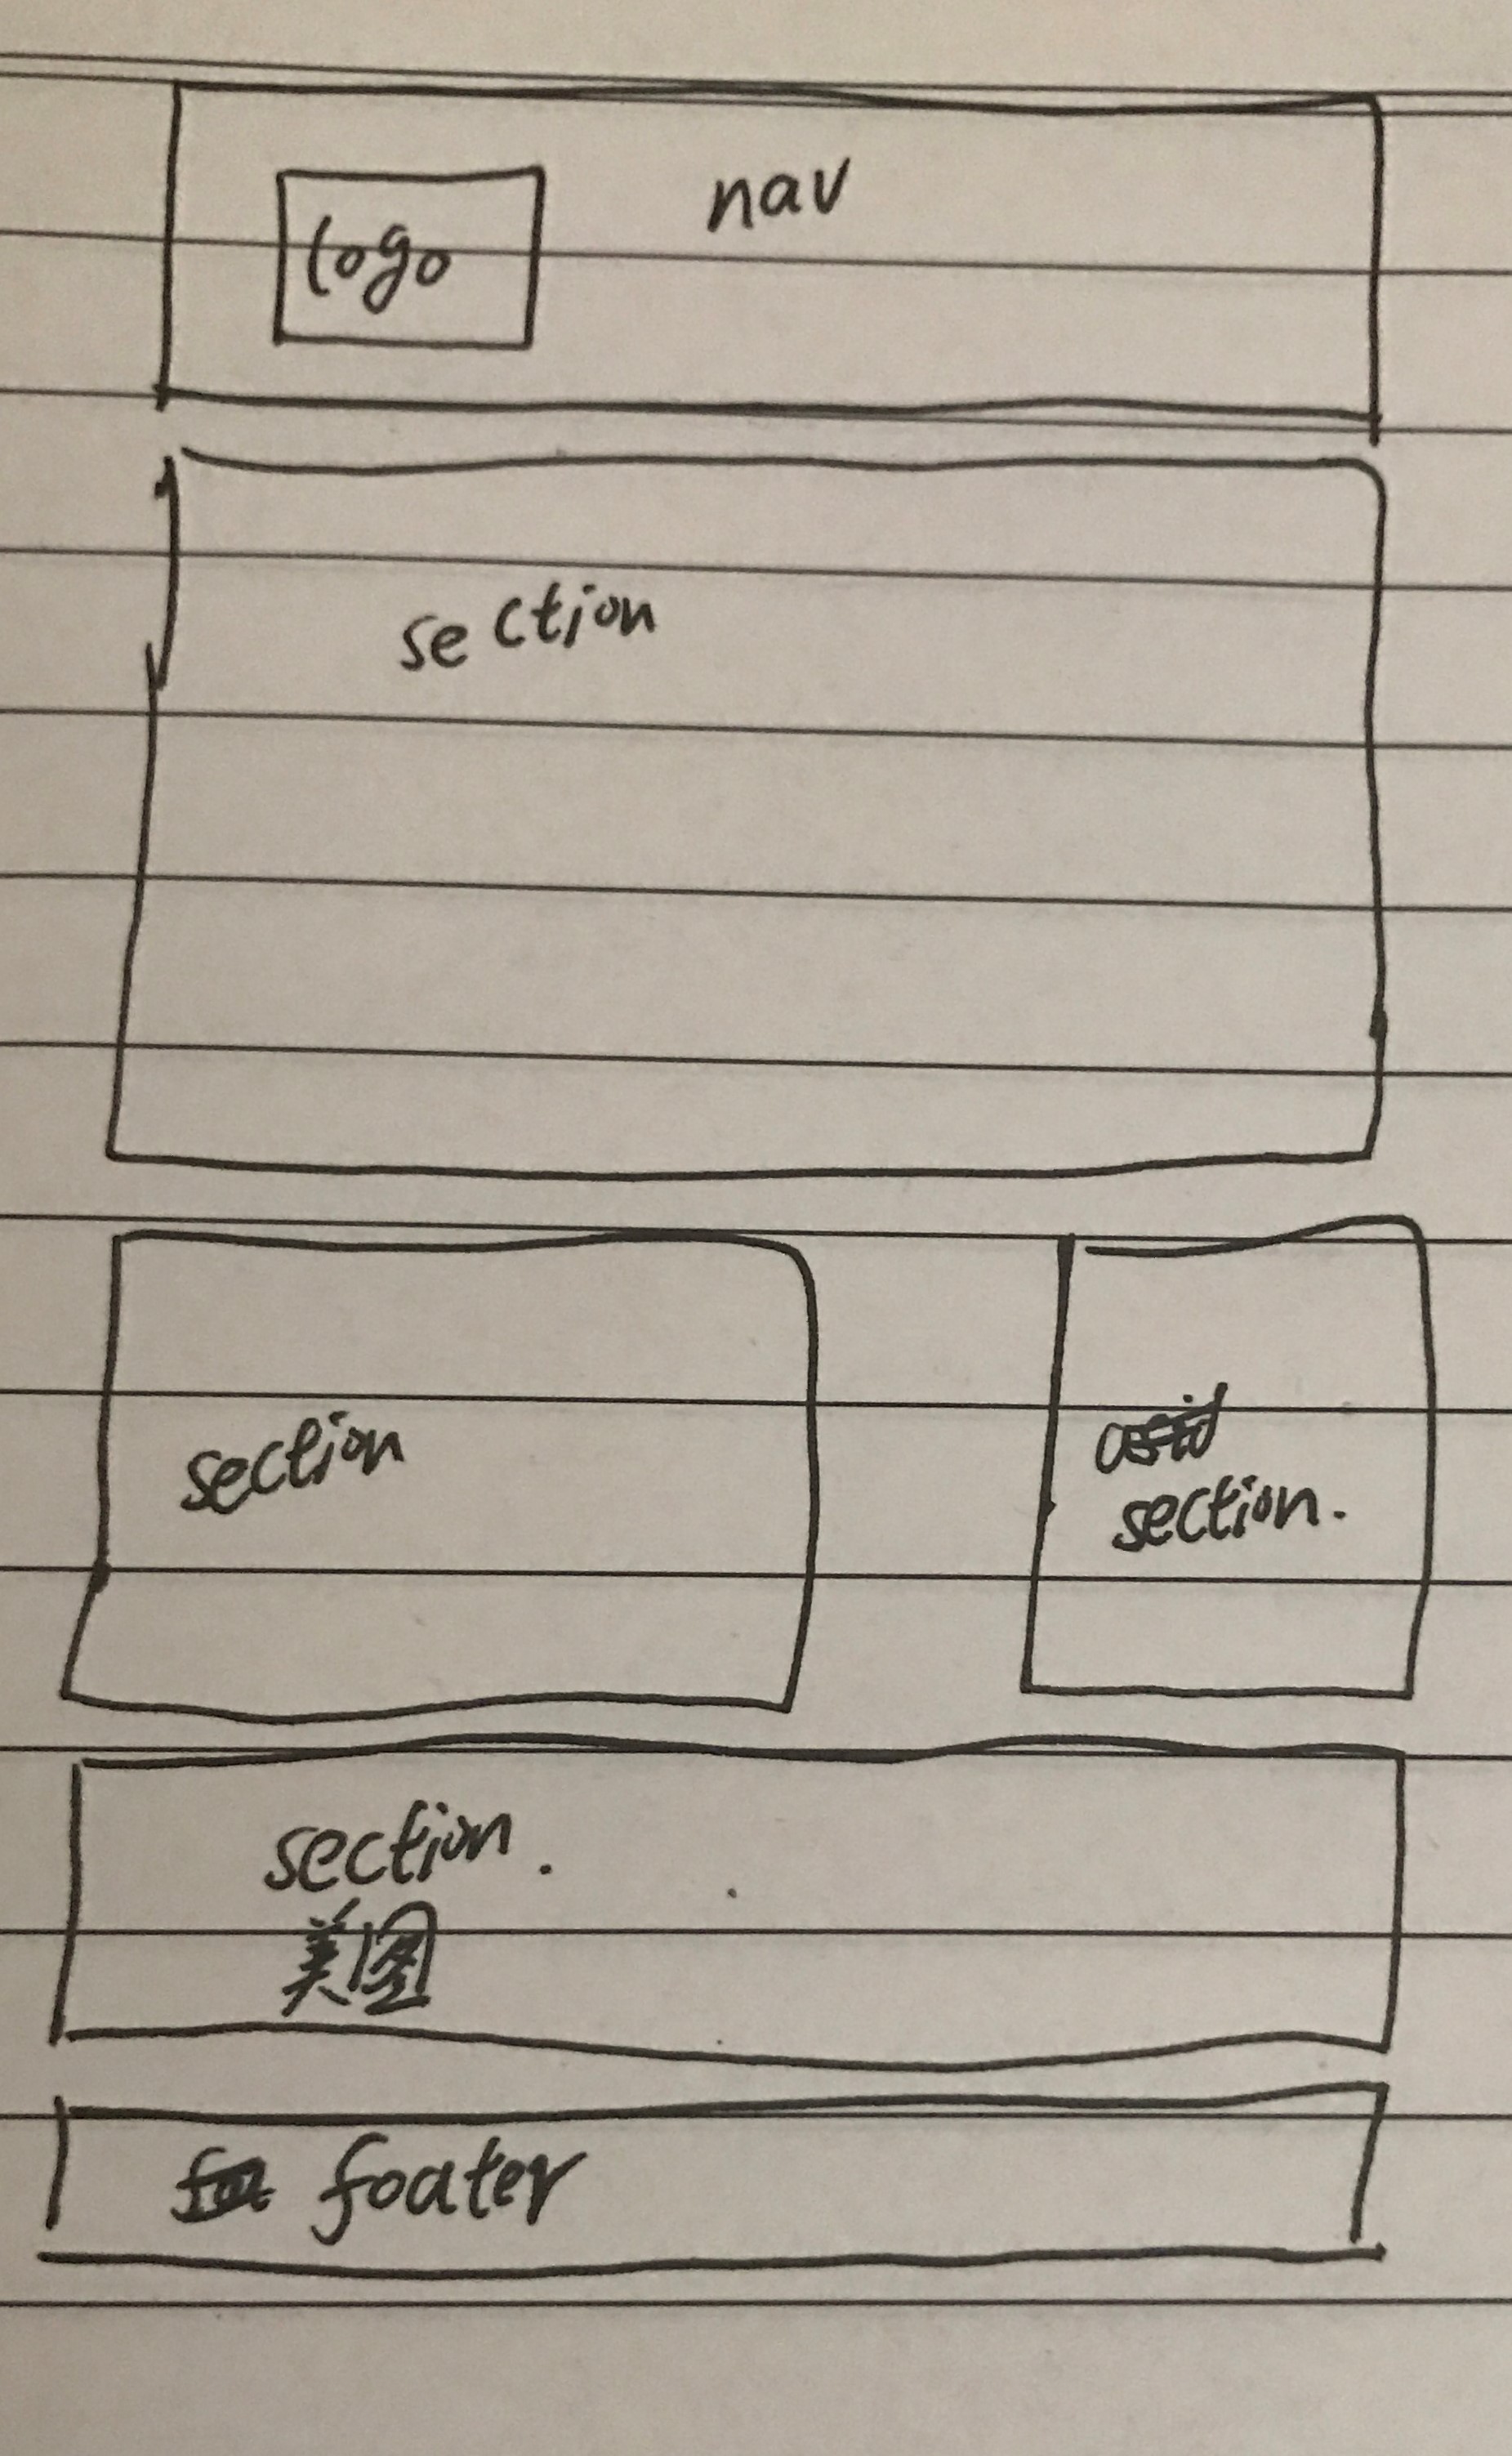 nav
logo
section
section
section.
section.
美图
foater